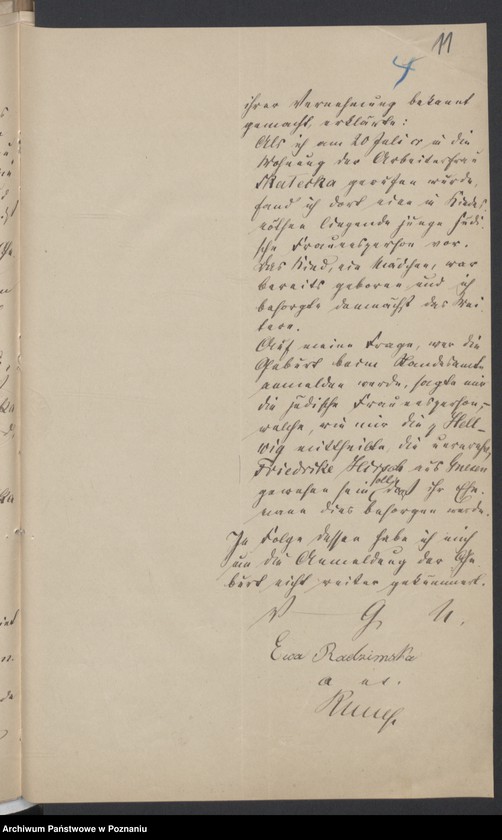 11
4
ihrer Vernehmung bekannt
gemacht, erklärte:
Als ich am 20 Juli cr in die
Wohnung der Arbeiterfrau
Skuterka gerufen wurde,
fand ich dort eine in Kindes
nöthen liegende junge jüdi-
sche Frauensperson vor.
Das Kind, ein Mädchen, war
bereits geboren und ich
besorgte demnächst das Wei-
tere.
Auf meine Frage, wer die
Geburt beim Standesamte
anmelden werde, sagte mir
die jüdische Frauensperson,
welche, wie mir die Hell-
wig mittheilte, die unverehel.
Friedrike Hirsch aus
gewesen sein soll, daß ihr Ehe-
mann dies besorgen werde.
In Folge dessen habe ich mich
um die Anmeldung der Ge-
burt nicht weiter gekümmert.
V. G. U.
Ewa Radzimska
a. u. s.
Archiwum Państwowe w Poznaniu